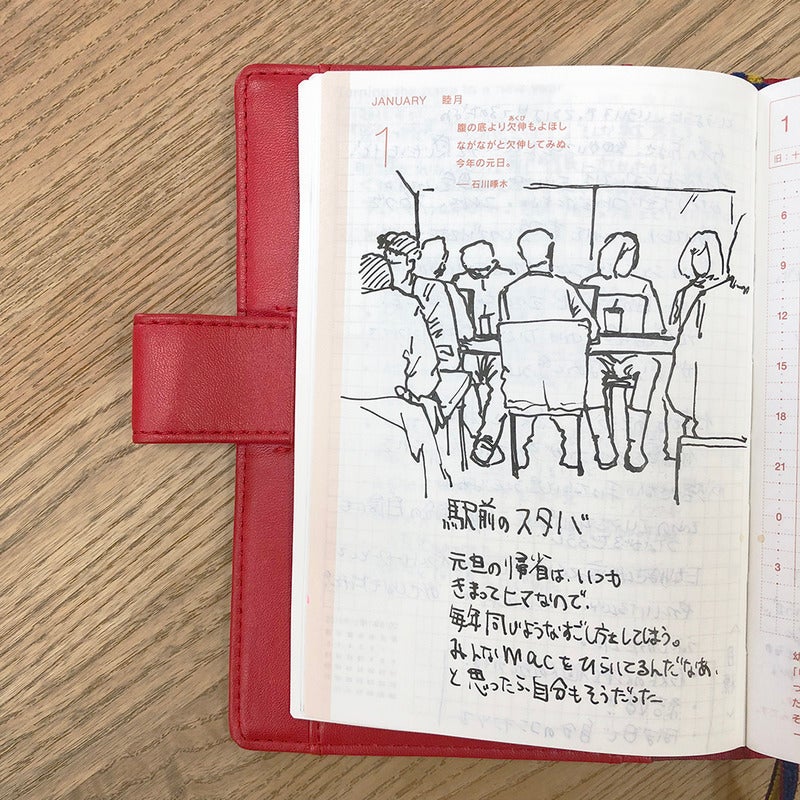 JANUARY 睦月
1
腹の底より欠伸もよほし
あくび
ながながと欠伸してみぬ、
今年の元日。
——石川啄木
駅前のスタバ
元旦の帰省は、いつも
きまってヒマなので、
毎年同じようなすごし方をしてしまう。
みんなmacをひらいてるんだなあ、
と思ったら、自分もそうだった
1
旧:十
6
9
12
15
18
21
0
3